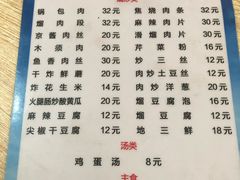 锅包肉 32元 焦熘肉条 32元
熘肉段 32元 麻辣肉片 30元
京酱肉丝 32元 滑熘肉片 30元
木须肉 20元 芹菜粉 16元
鱼香肉丝 30元 炒三丝 12元
干炸鲜蘑 20元 肉炒土豆丝 12元
炸花生米 14元 肉炒洋葱 20元
火腿肠炒酸黄瓜 20元 熘豆腐泡 20元
麻辣豆腐 12元 熘豆腐 12元
尖椒干豆腐 12元 地三鲜 18元
汤类
鸡蛋汤 8元
主食